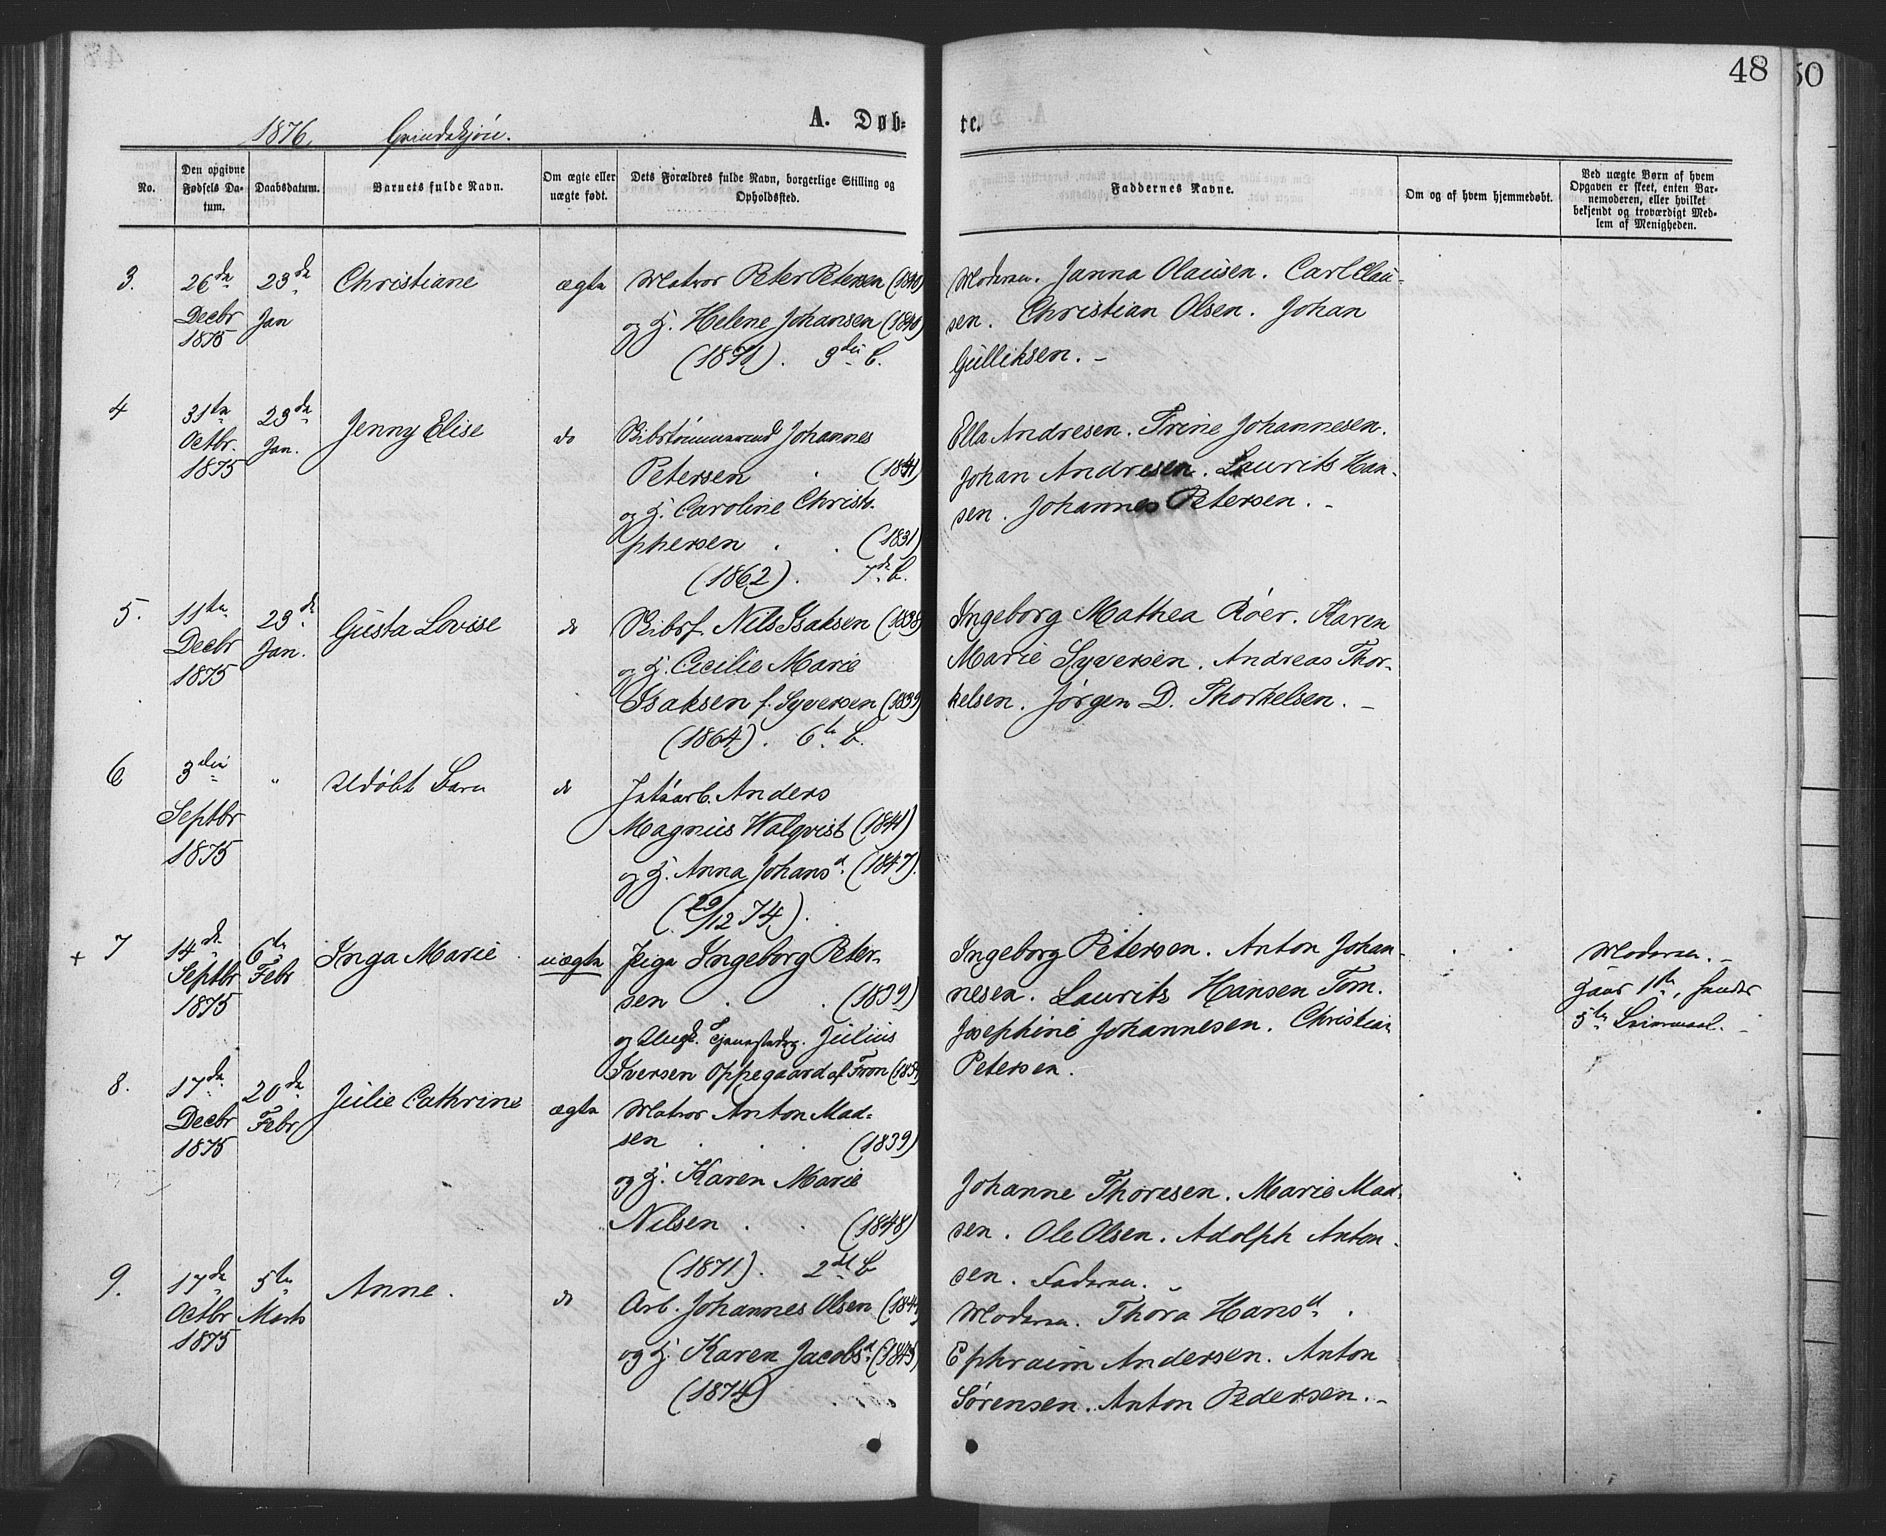 48
50
1876. Grindskjön.
A. Døb-
te.
No.
Den opgivne Fødsels Da-tum.
Daabsdatum.
Barnets fulde Navn.
Om ægte eller uægte født.
Dets Forældres fulde Navn, borgerlige Stilling og Opholdssted.
Faddernes Navne.
Om og af hvem hjemmedøbt.
Ved uægte Børn af hvem
Opgaven er skeet, enten Bar-
nemoderen, eller hvilket
bekjendt og troværdigt Med-
lem af Menigheden.
3.
26de
Decbr
1875
23de
Jan
Christiane
ægte
Matros Peter Petersen (1840)
og H. Helene Johansen (1840)
(1871). 3die B.
Moderen. Janna Olausen. Carl Clau-
sen. Christian Olsen. Johan
Gulliksen. -
4
31te
Octbr.
1875
23de
Jan.
Jenny Elise
do
Skibstømmermd Johannes
Petersen . (1841)
og H. Caroline Christo-
phersen . . (1831)
(1862). 7de B.
Ella Andresen. Trine Johannesen.
Johan Andresen. Laurits Han-
sen. Johannes Petersen. -
5.
11te
Decbr
1875
23de
Jan.
Gusta Lovise
do
Skibsf. Nils Isaksen (1838)
og H. Cecilie Marie
Isaksen f. Syversen (1839)
(1864). 6te B.
Ingeborg Mathea Röer. Karen
Marie Syversen. Andreas Thor-
kelsen. Jørgen D. Thorkelsen. -
6
3die
Septbr
1875
"
Udøbt Barn
do
Anders
Magnus Walqvist (1841)
og H. Anna Johansd. (1847).
(29/12 74).
+ 7
14de
Septbr
1875
6te
Febr
Inga Marie
uægte
Pige Ingeborg Peter-
sen . . (1839)
og Ungk. Julius
Iversen Oppegaard af Fron
Ingeborg Petersen. Anton Johan-
nesen. Laurits Hansen Tom.
Josephine Johannesen. Christian
Petersen.
Moderen. -
Hans 1te, hendes
5te Leiermaal. -
8.
17de
Decbr
1875
20de
Febr
Julie Cathrine
ægte
Matros Anton Mad-
sen . . . (1839)
og H. Karen Marie
Nilsen . . (1848)
(1871). 2det B
Johanne Thoresen. Marie Mad-
sen. Ole Olsen. Adolph Anton-
sen. Faderen. -
9.
17de
Octbr
1875
5te
Marts
Anne.
do
Arb. Johannes Olsen
og H. Karen Jacobsd. (1845)
(1874)
Moderen. Thora Hansd.
Ephraim Andersen. Anton
Sørensen. Anton Pedersen. -